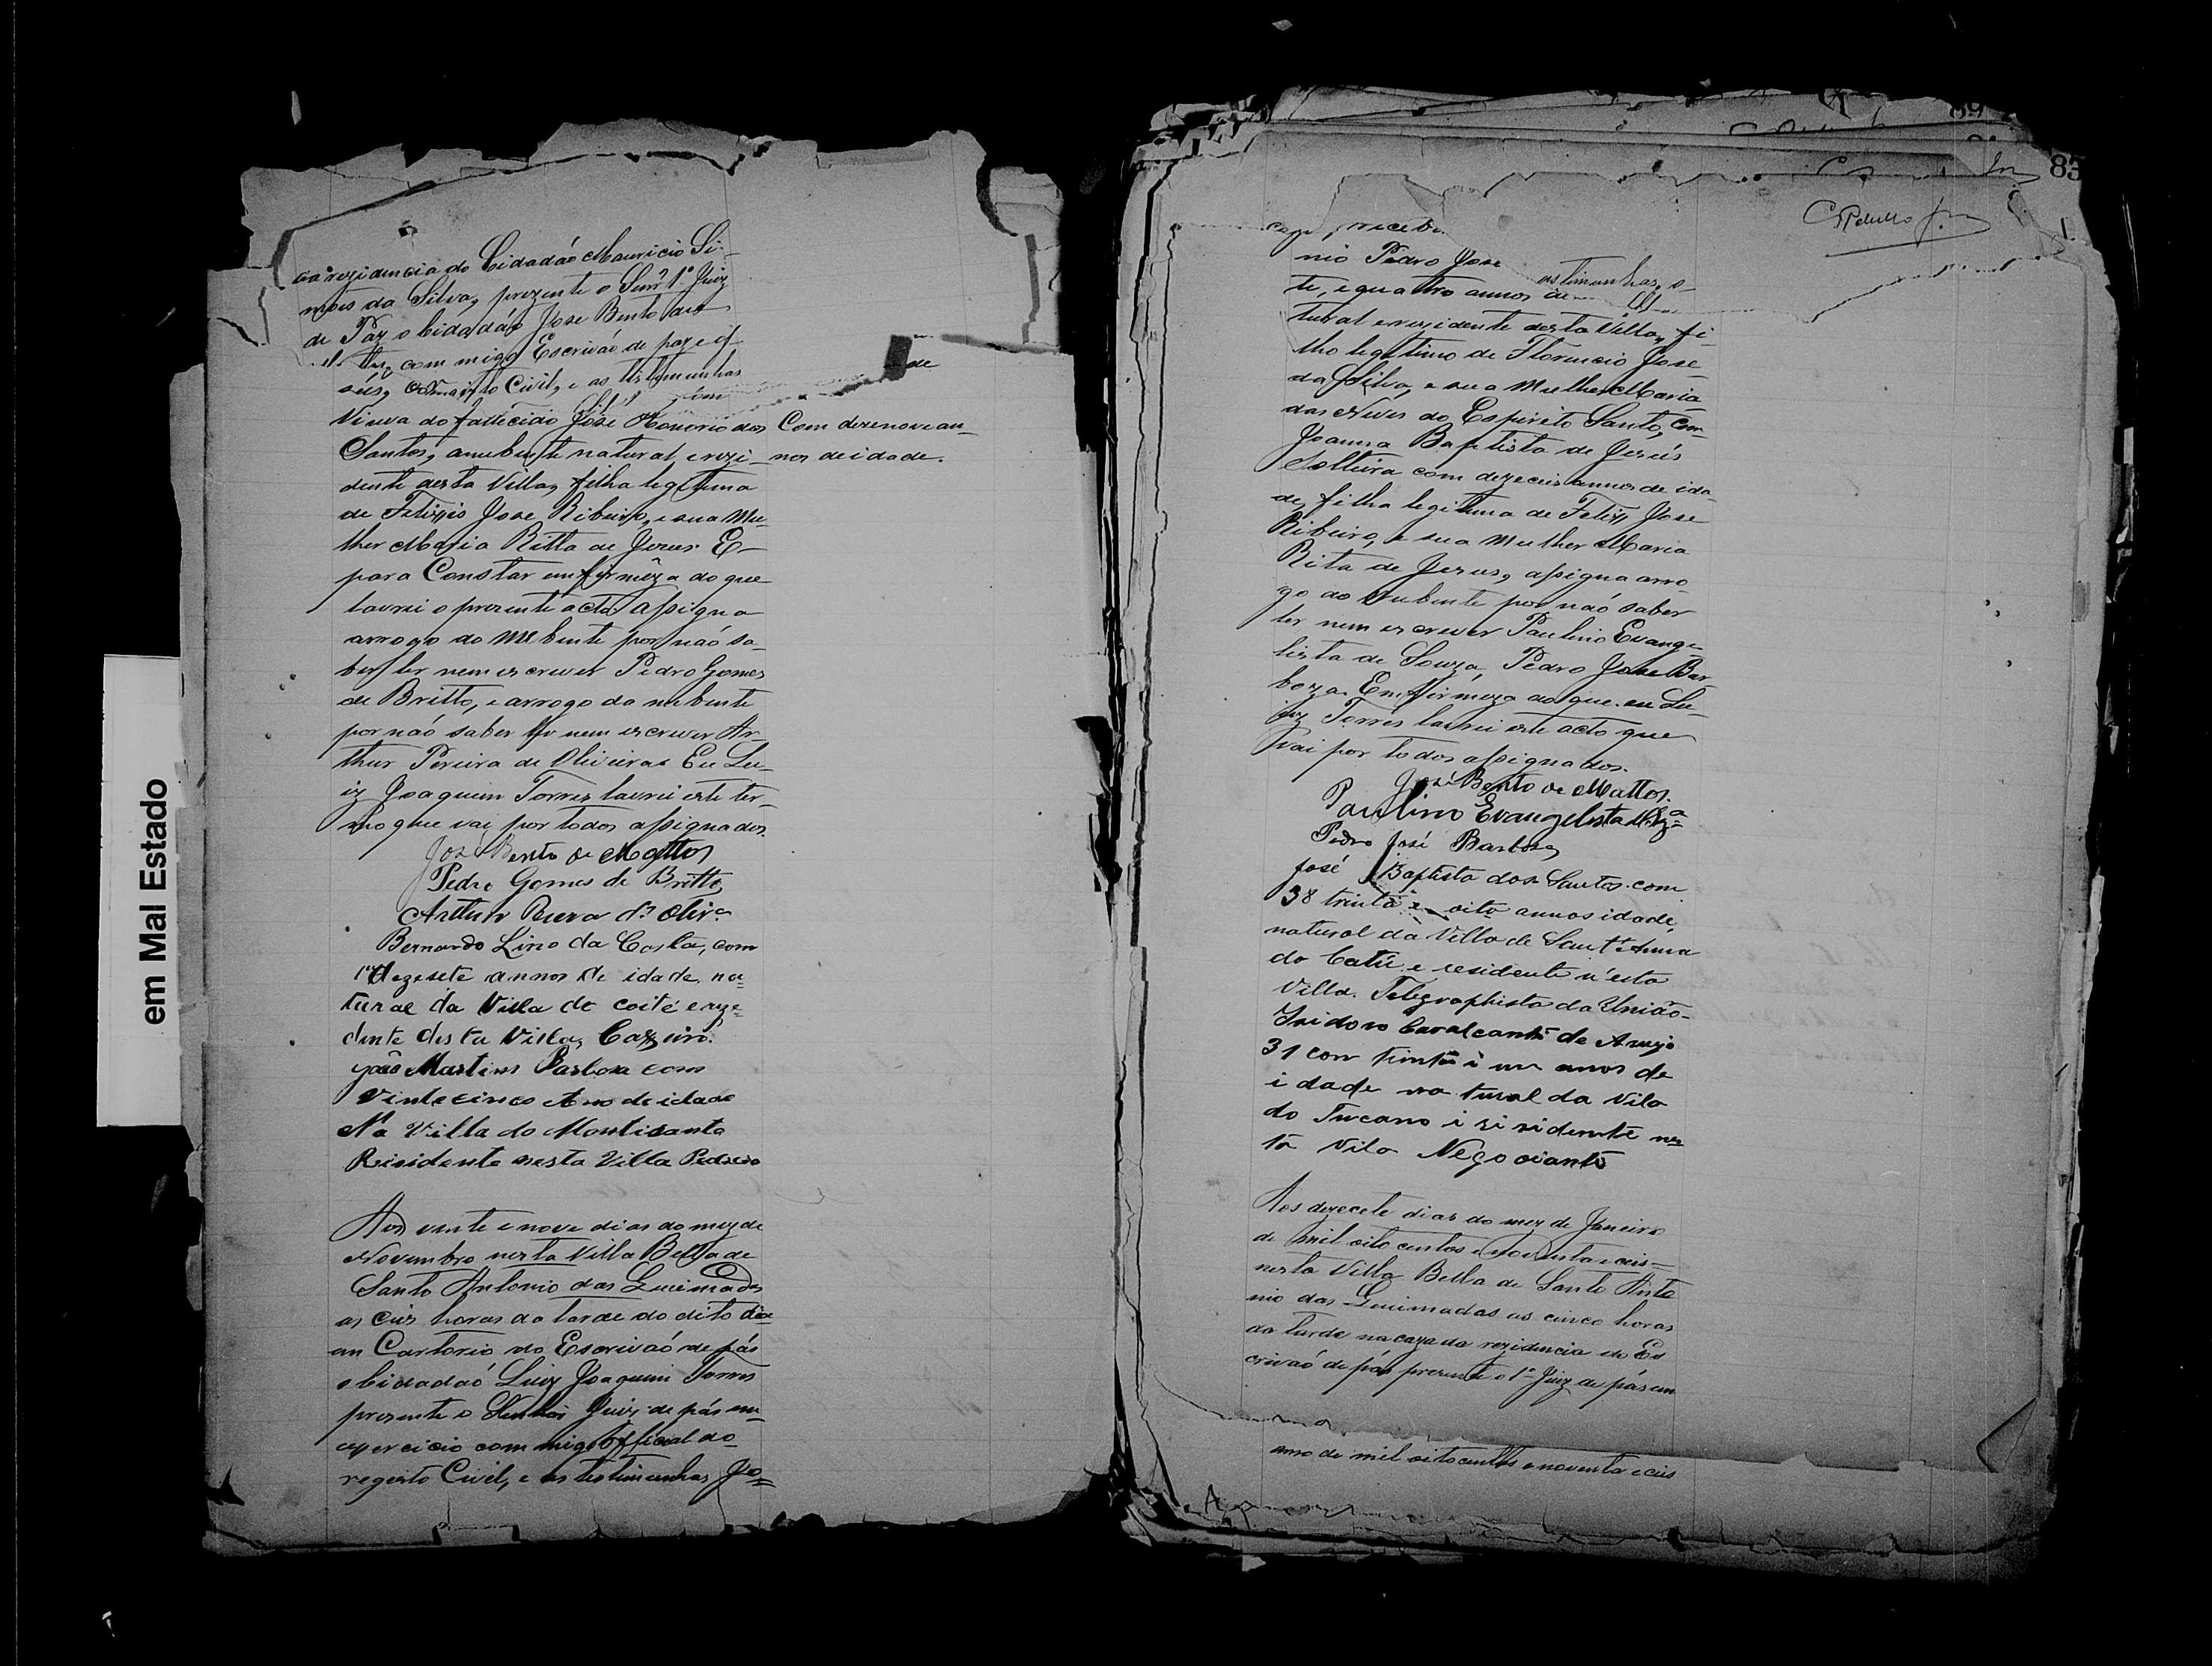 em Mal Estado
ca rezidencia do Cidadaó Mauricio Si-
mões da Silva, prezente o Senr 1º Juiz
de Paz o Cidadaó Jose Bento de
com migo Escrivaó de paz e of
Civil, e as testimunhas
de
Viuva do fallecido José Honorio dos
Com dezenove an-
Santos, anubente natural, erezi-
nos de idade.
dente desta Villa, filha legitima
de Felix Jose Ribeiro, e sua Mu-
lher Maria Ritta de Jezus E-
para Constar em firmêza do que
lavrei o prezente acto Assigna
arrogo do nubente por naó sa-
ber ler nem escrever Pedro Gomes
de Britto, e arrogo da nubente
por naó saber ler nem escrever Ar-
thur Pereira de Oliveira Eu Lu-
iz Joaquim Torres lavrei este ter-
mo que vai por todos assignados.
José Bento de Mattos
Pedro Gomes de Britto
Arthur Perera d' Olivª
Bernardo Lino da Costa, com
17 dezesete annos de idade, na=
tural da Villa do coité e reze=
dente desta Villa, Caxeiro.
João Martins Barboza com
Vinte cinco Ano de idade
Na Villa do Montisanto
Reisidente nesta Villa Pedreiro
Aos vinte e nove dias do mez de
Novembro nesta Villa Bella de
Santo Antonio das Queimadas
as ceis horas da tarde do dito dia
em Cartorio do Escrivaó de pás
o Cidadaó Luiz Joaquim Torres
prezente o Senhor Juiz de pás em
exercicio com migo official do
registo Civil, e as testimunhas Jo=
83
nio Pedro Jose
testimunhas, e
te, e quatro annos de
tural erezidente desta Villa, fi-
lho legitimo de Florencio Jose
da Silva, e sua Mulher Maria
das Neves do Espirito Santo, Com
Joanna Baptista de Jesús
Solteira com dezeceis annos de ida
de, filha legitima de Felix Jose
Ribeiro, e sua Mulher Maria
Rita de Jezus, assigna arro
go do nubente por naó saber
ler nem escrever Paulino Evange
lista de Souza, Pedro Jose Bar
boza. Em firmeza do que eu Lu-
iz Torres lavrei este acto que
vai por todos assignados.
José Bento de Mattos.
Paulino Evangelista
Pedro José Barbosa
José Baptista dos Santos com
38 trinta e oito annos idade,
natural da Villa de Sant'Anna
do Catú e residente n'esta
Villa. Telegraphista da União-
Izidoro Cavalcanti de Araujo
31 con trinta i um anos de
idade na tural da Vila
do Tucano i rizidente nes
ta Vila Negociante
Aos dezecete dias do mez de Janeiro
de mil oito centos e noventa e ceis=
nesta Villa Bella de Santo Anto
nio das Queimadas as cinco horas
da tarde na caza da rezidencia do Es
crivaó de pás prezente o 1º Juiz de pás em
anno de mil oitocentos e noventa e ceis